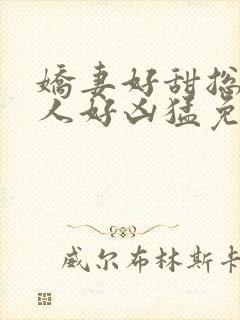 嬌妻好甜揔
人好凶猛免
威尔布林斯卡